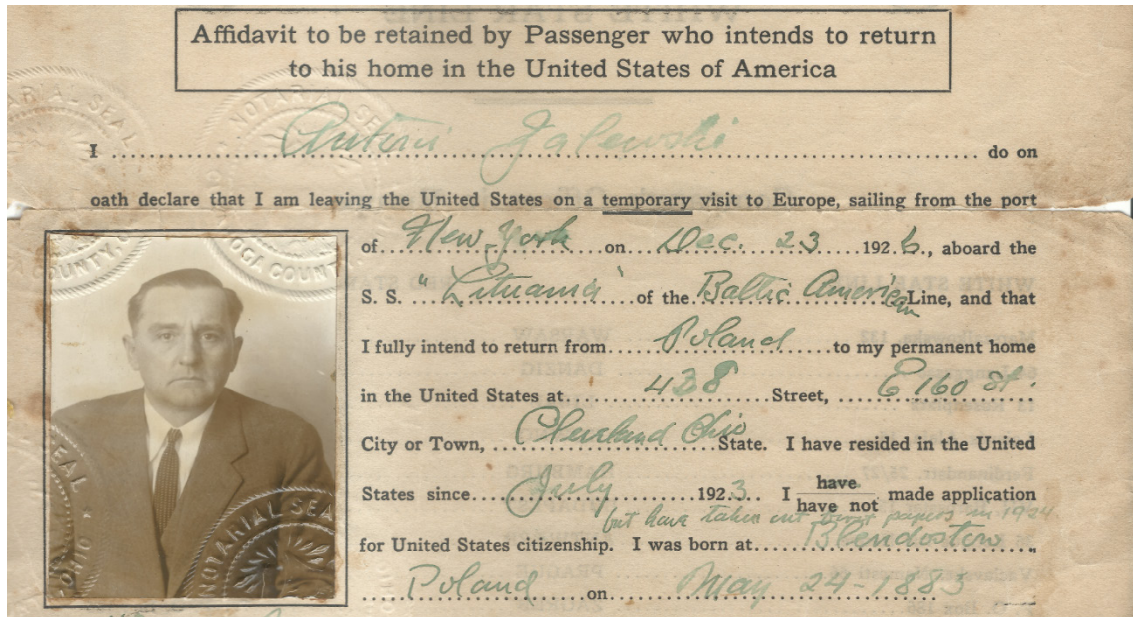 WHITE STAR LINE
Affidavit to be retained by Passenger who intends to return
to his home in the United States of America
NOTARIAL SEAL
NOTARIAL SEAL
I Antoni Zalewski do on
oath declare that I am leaving the United States on a temporary visit to Europe, sailing from the port
of New York on Dec. 23 1926., aboard the
S. S. "Lituania" of the Baltic American Line, and that
I fully intend to return from Poland to my permanent home
in the United States at 438 Street, E 160 St.
City or Town, Cleveland Ohio State. I have resided in the United
States since July 1923. I have
have not made application
but have taken out first papers in 1924
for United States citizenship. I was born at
Poland on May 24-1883
COUNTY
OGA COUNTY
SEAL
OHIO
NOTARIAL SEAL
WARSAW
DANZIG
PRAGUE